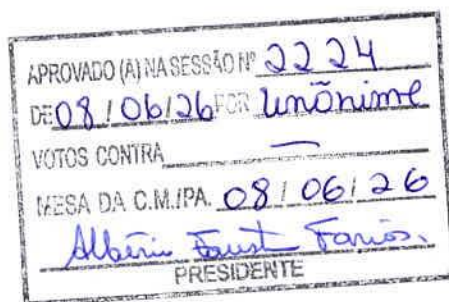 APROVADO (A) NA SESSÃO Nº 2224
DE 08/06/26 POR Unânime
VOTOS CONTRA —
MESA DA C.M./PA. 08/06/26
Farias.
PRESIDENTE